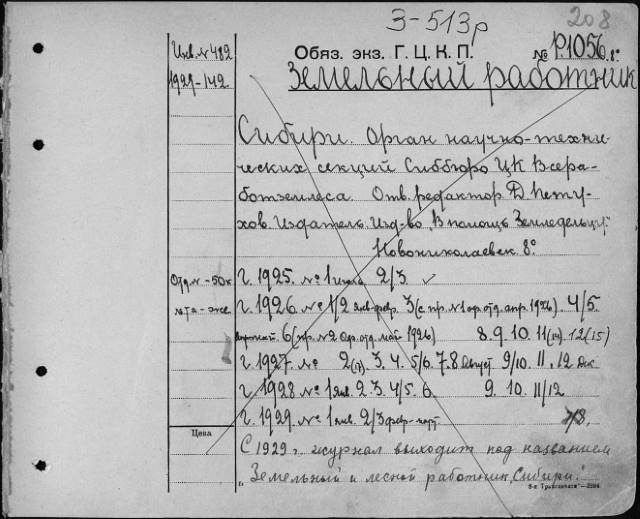 З-513р
208
Инв. N 482
1929-142
Обяз. экз. Г. Ц. К. П.
№ Р.1056. 8°
Земельный работник
Сибири. Орган научно-техни-
ческих секций Сиббюро ЦК Всера-
ботземлеса. Отв. редактор Д. Пету-
хов. Издатель Изд-во „В помощь Земледельцу".
Новониколаевск 8°
Отд. N - 50к
г. 1925. № 1 июль 2/3.
г. 1926. № 1/2 янв-фев. 3 (с пр. №1 ор. отд. апр. 1926). 4/5.
6 (пр. №2 ор. отд. май 1926) 8. 9. 10. 11(14). 12(15)
г. 1927. № 2(17) 3. 4. 5/6. 7. 8 август 9/10. 11. 12 дек
г. 1928 № 1 янв. 2. 3. 4/5. 6. 9. 10. 11/12
г. 1929. № 1 янв. 2/3 февр-март. 7/8.
Цена
С 1929 г. журнал выходит под названием
„Земельный и лесной работник Сибири."